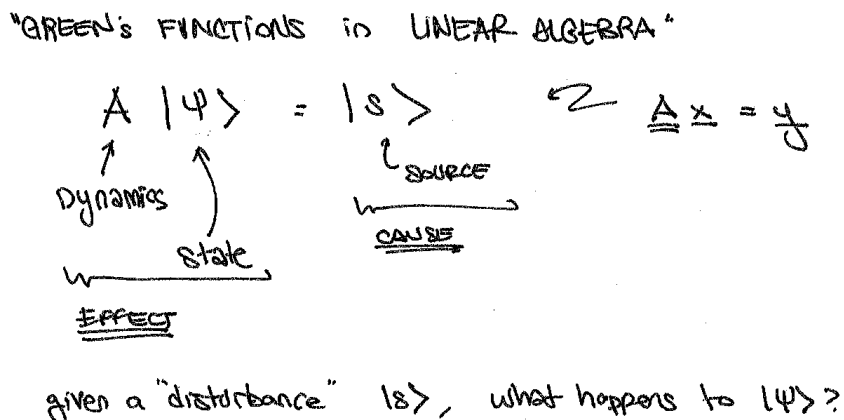 "GREEN's FUNCTIONS in LINEAR ALGEBRA"
A |ψ> = |s> A x = y
SOURCE
Dynamics
CAUSE
State
EFFECT
given a "disturbance" |s>, what happens to |ψ>?